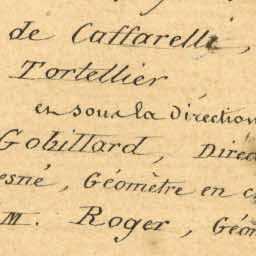 de Caffarelli,
Tortellier
en sous la diréction
Gobillard, Direc
esné, Géomètre en c
M. Roger, Géom